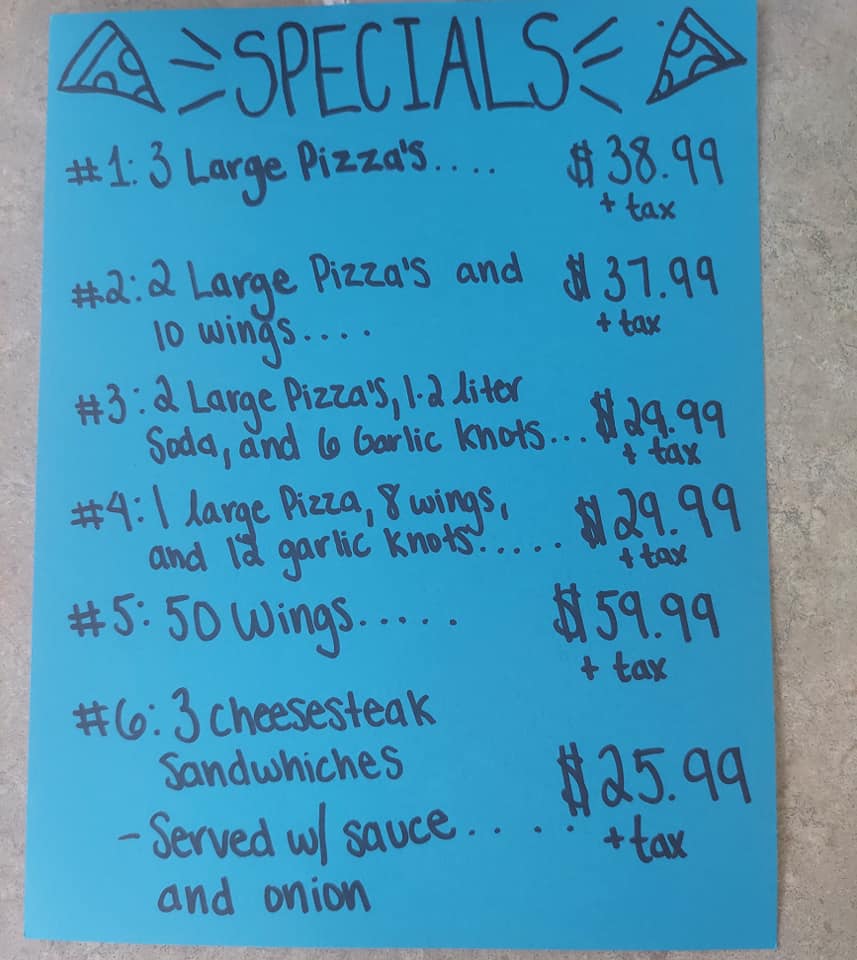 SPECIALS
#1: 3 Large Pizza's.... $38.99
+ tax
#2: 2 Large Pizza's and $37.99
10 wings.... + tax
#3: 2 Large Pizza's, 1-2 liter
Soda, and 6 Garlic Knots... $29.99
+ tax
#4: 1 large Pizza, 8 wings, $29.99
and 12 garlic knots..... + tax
#5: 50 Wings..... $59.99
+ tax
#6: 3 cheesesteak
Sandwhiches $25.99
- Served w/ sauce.... + tax
and onion